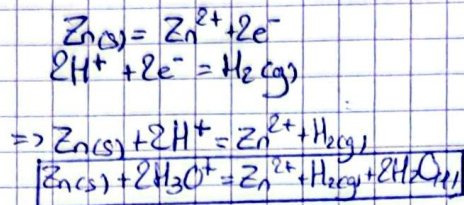 Zn(s) = Zn²⁺ + 2e⁻
2H⁺ + 2e⁻ = H₂(g)
=> Zn(s) + 2H⁺ = Zn²⁺ + H₂(g)
Zn(s) + 2H₃O⁺ = Zn²⁺ + H₂(g) + 2H₂O(l)